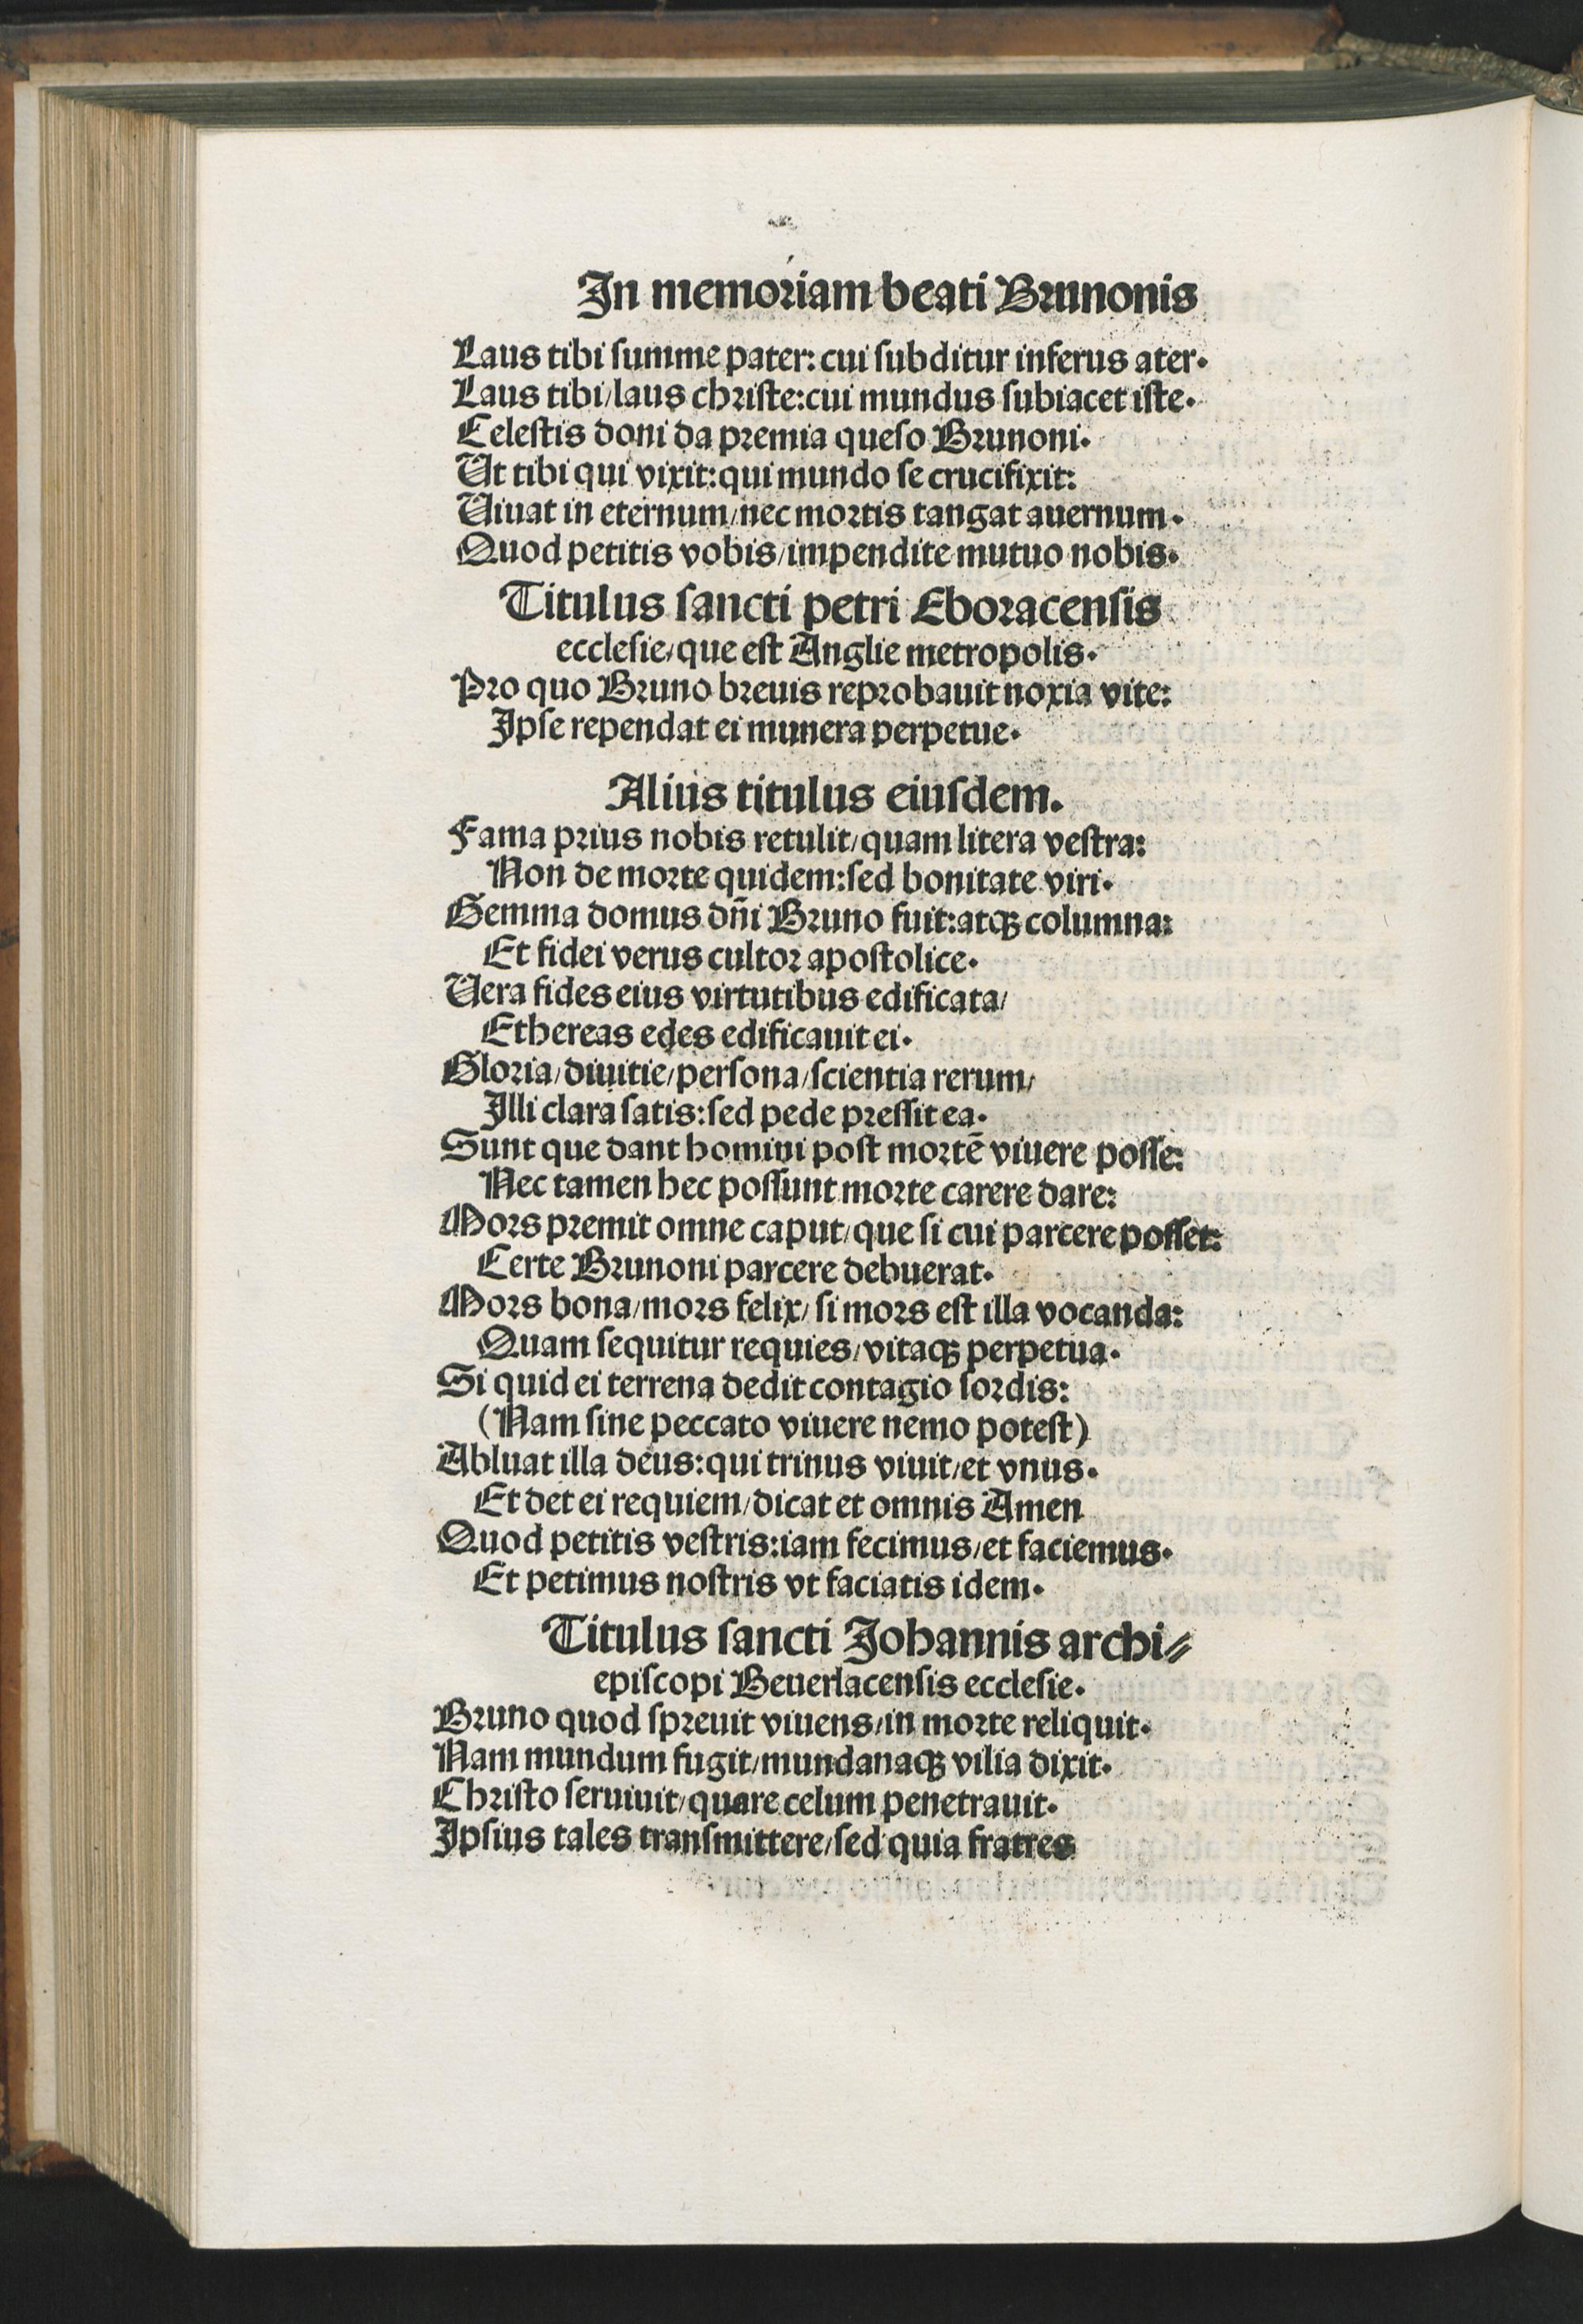 In memoriam beati Brunonis
Laus tibi summe pater: cui subditur inferus ater.
Laus tibi/laus christe:cui mundus subiacet iste.
Celestis doni da premia queso Brunoni.
Ut tibi qui vixit:qui mundo se crucifixit:
Uiuat in eternum/nec mortis tangat auernum.
Quod petitis vobis/impendite mutuo nobis.
Titulus sancti petri Eboracensis
ecclesie/que est Anglie metropolis.
Pro quo Bruno breuis reprobauit noxia vite:
Ipse rependat ei munera perpetue.
Alius titulus eiusdem.
Fama prius nobis retulit/quam litera vestra:
Non de morte quidem:sed bonitate viri.
Gemma domus dñi Bruno fuit:atqꝫ columna:
Et fidei verus cultor apostolice.
Uera fides eius virtutibus edificata/
Ethereas edes edificauit ei.
Gloria/diuitie/persona/scientia rerum/
Illi clara satis:sed pede pressit ea.
Sunt que dant homini post mortē viuere posse:
Nec tamen hec possunt morte carere dare:
Mors premit omne caput/que si cui parcere posset:
Certe Brunoni parcere debuerat.
Mors bona/mors felix/si mors est illa vocanda:
Quam sequitur requies/vitaqꝫ perpetua.
Si quid ei terrena dedit contagio sordis:
(Nam sine peccato viuere nemo potest)
Abluat illa deus:qui trinus viuit/et vnus.
Et det ei requiem/dicat et omnis Amen
Quod petitis vestris:iam fecimus/et faciemus.
Et petimus nostris vt faciatis idem.
Titulus sancti Johannis archi⸗
episcopi Beuerlacensis ecclesie.
Bruno quod spreuit viuens/in morte reliquit.
Nam mundum fugit/mundanaqꝫ vilia dixit.
Christo seruiuit/quare celum penetrauit.
Ipsius tales transmittere/sed quia fratres